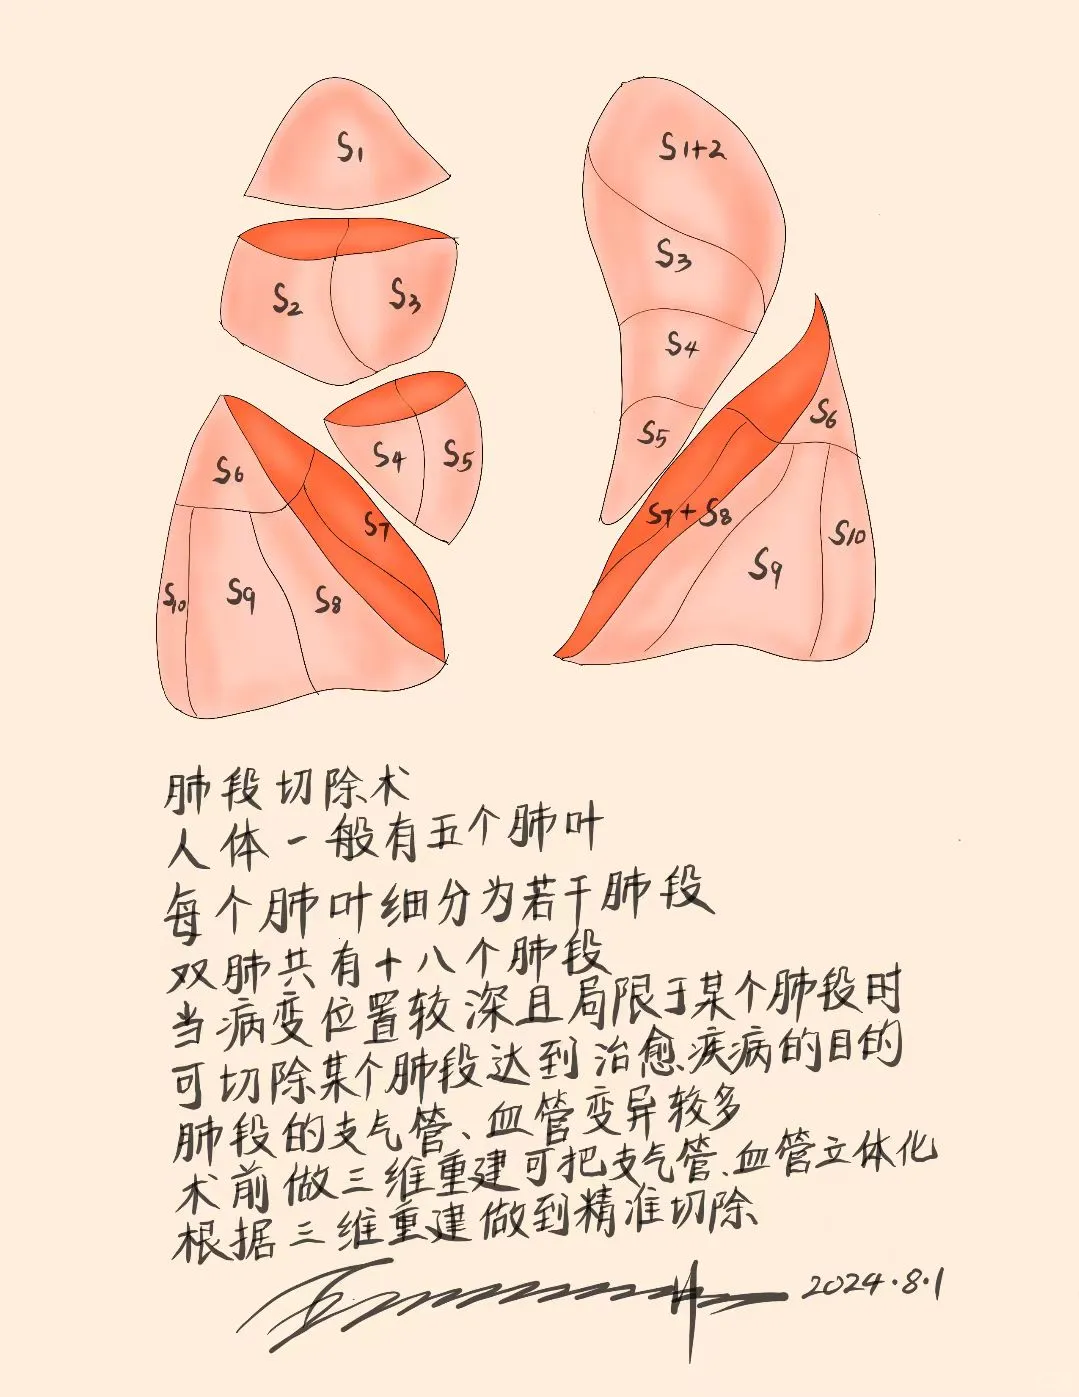 S1
S2
S3
S4
S5
S6
S7
S8
S9
S10
S1+2
S3
S4
S5
S6
S7+S8
S9
S10
肺段切除术
人体一般有五个肺叶
每个肺叶细分为若干肺段
双肺共有十八个肺段
当病变位置较深且局限于某个肺段时
可切除某个肺段达到治愈疾病的目的
肺段的支气管、血管变异较多
术前做三维重建可把支气管、血管立体化
根据三维重建做到精准切除
2024.8.1